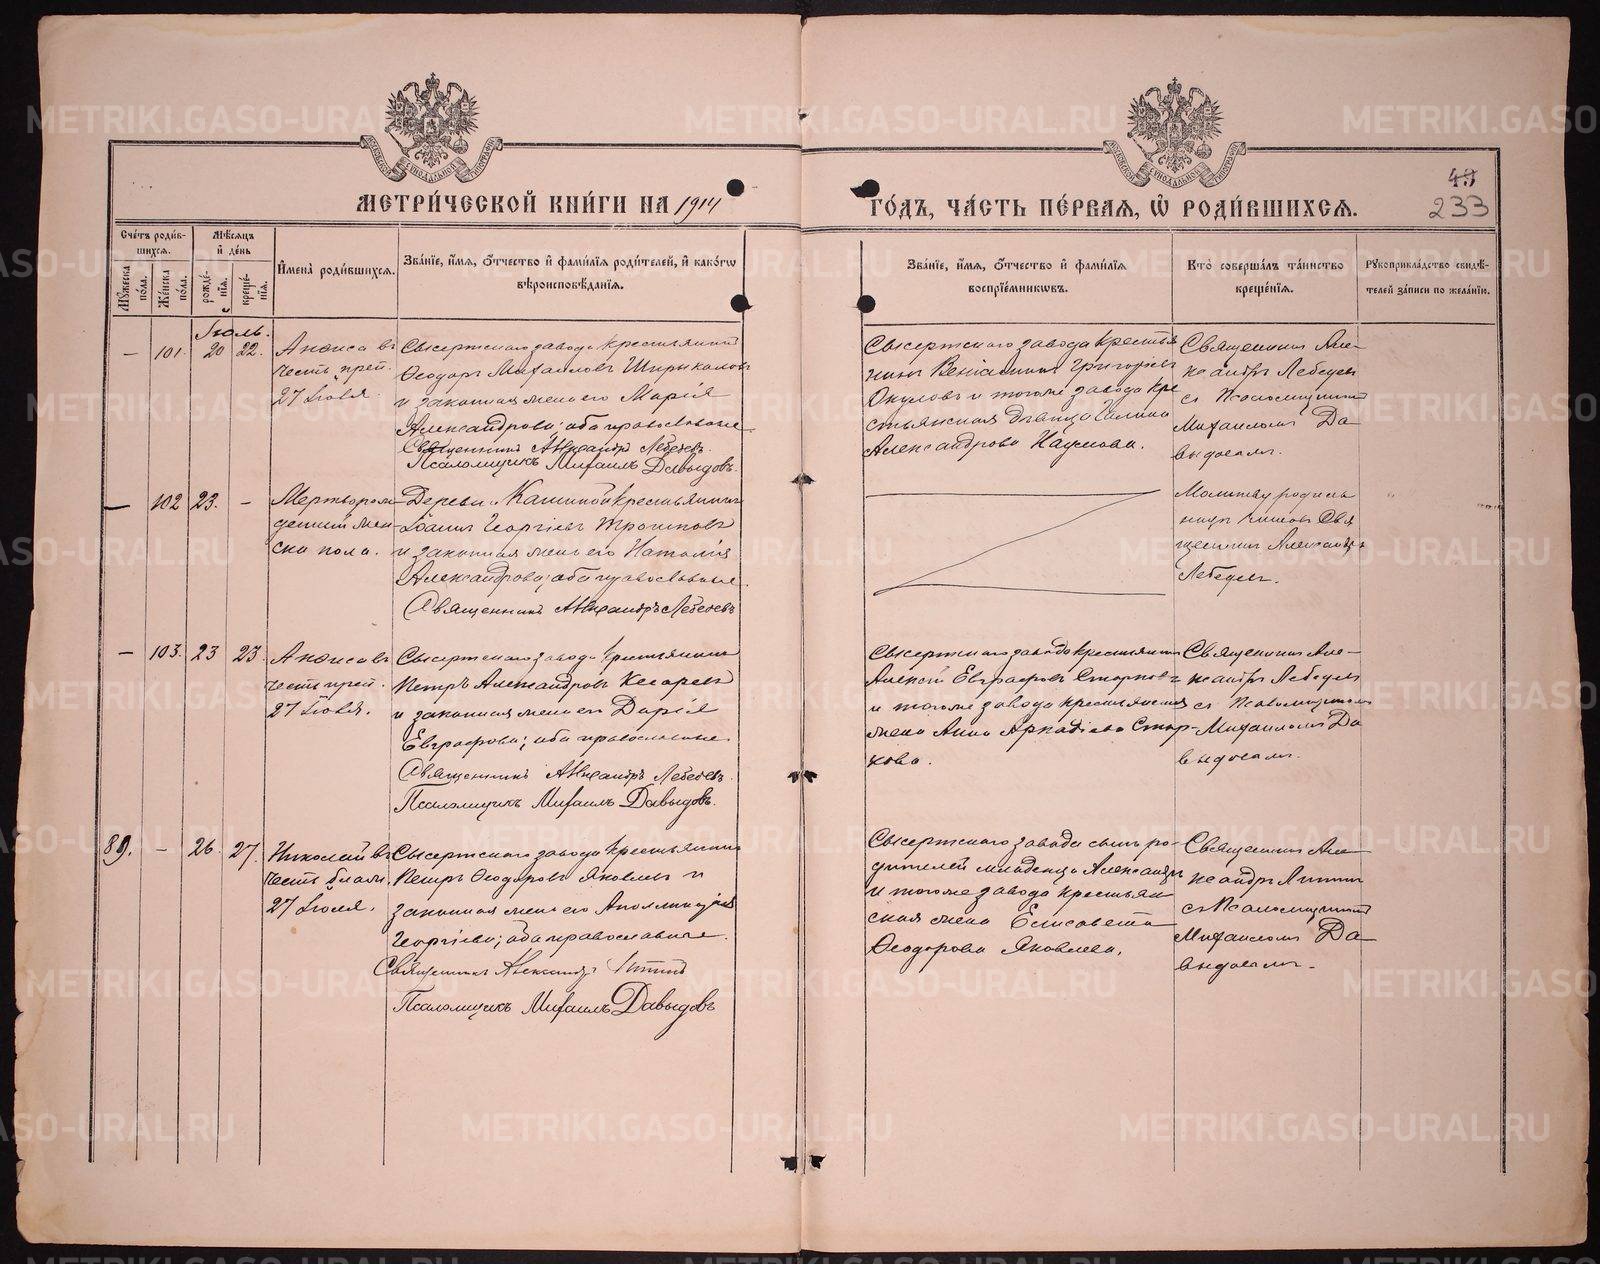 МЕТРИ́ЧЕСКОЙ КНИ́ГИ НА 1914
ГО́ДЪ, ЧА́СТЬ ПЕ́РВАЯ, Ѡ҆ РОДИ́ВШИХСЯ.
49
233
Сче́тъ роди́вшихся.
Му́жеска по́ла.
Же́нска по́ла.
Мѣ́сяцъ и҆ де́нь
рожде́нїя.
креще́нїя.
И҆мена̀ роди́вшихся.
Зва́нїе, и҆́мя, ѻ҆́тчество и҆ фами́лїя роди́телей, и҆ како́гѡ
вѣроисповѣ́данїя.
Зва́нїе, и҆́мя, ѻ҆́тчество и҆ фами́лїя
воспрїе́мникѡвъ.
Кто̀ соверша́лъ та́инство
креще́нїя.
Рꙋкоприкла́дство свидѣ́-
телей за́писи по жела́нїю.
Іюль.
— 101. 20 22.
Анѳиса въ
честь преп.
27 Іюля.
Сысертскаго завода крестьянинъ
Ѳеодоръ Михаиловъ Ширыкаловъ
и законная жена его Марія
Александрова; оба православные
Священникъ Александръ Лебедевъ.
Псаломщикъ Михаилъ Давыдовъ.
Сысертскаго завода крестья
нинъ Веніаминъ Григоріевъ
Окуловъ и тогоже завода кре
стьянская дѣвица Галина
Александрова Наумова.
Священникъ Але-
ксандръ Лебедевъ
съ Псаломщикомъ
Михаиломъ Да-
выдовымъ.
— 102 23. —
Мертворож-
денный жен-
ска пола.
Деревни Кашиной крестьянинъ
Іоаннъ Георгіевъ Трошковъ
и законная жена его Наталія
Александрова; оба православные.
Священникъ Александръ Лебедевъ
Молитву родиль
ницѣ читалъ Свя
щенникъ Александръ
Лебедевъ.
— 103. 23 23.
Анѳиса въ
честь преп.
27 Іюля.
Сысертскаго завода крестьянинъ
Петръ Александровъ Кесаревъ
и законная жена его Дарія
Евграфова; оба православные.
Священникъ Александръ Лебедевъ.
Псаломщикъ Михаилъ Давыдовъ.
Сысертскаго завода крестьянинъ
Алексѣй Евграфовъ Старковъ
и тогоже завода крестьянская
жена Анна Аркадіева Стар-
кова.
Священникъ Але-
ксандръ Лебедевъ
съ Псаломщикомъ
Михаиломъ Да
выдовымъ.
89. — 26. 27.
Николай въ
честь блаж.
27 Іюля.
Сысертскаго завода крестьянинъ
Петръ Ѳеодоровъ Яковлевъ и
законная жена его Аполлинарія
Георгіева; оба православные.
Священникъ Александръ
Псаломщикъ Михаилъ Давыдовъ
Сысертскаго завода сынъ ро-
дителей младенца Александръ
и тогоже завода крестьян
ская жена Елисавета
Ѳеодорова Яковлева.
Священникъ Але
ксандръ
съ Псаломщикомъ
Михаиломъ Да-
выдовымъ.
METRIKI.GASO-URAL.RU